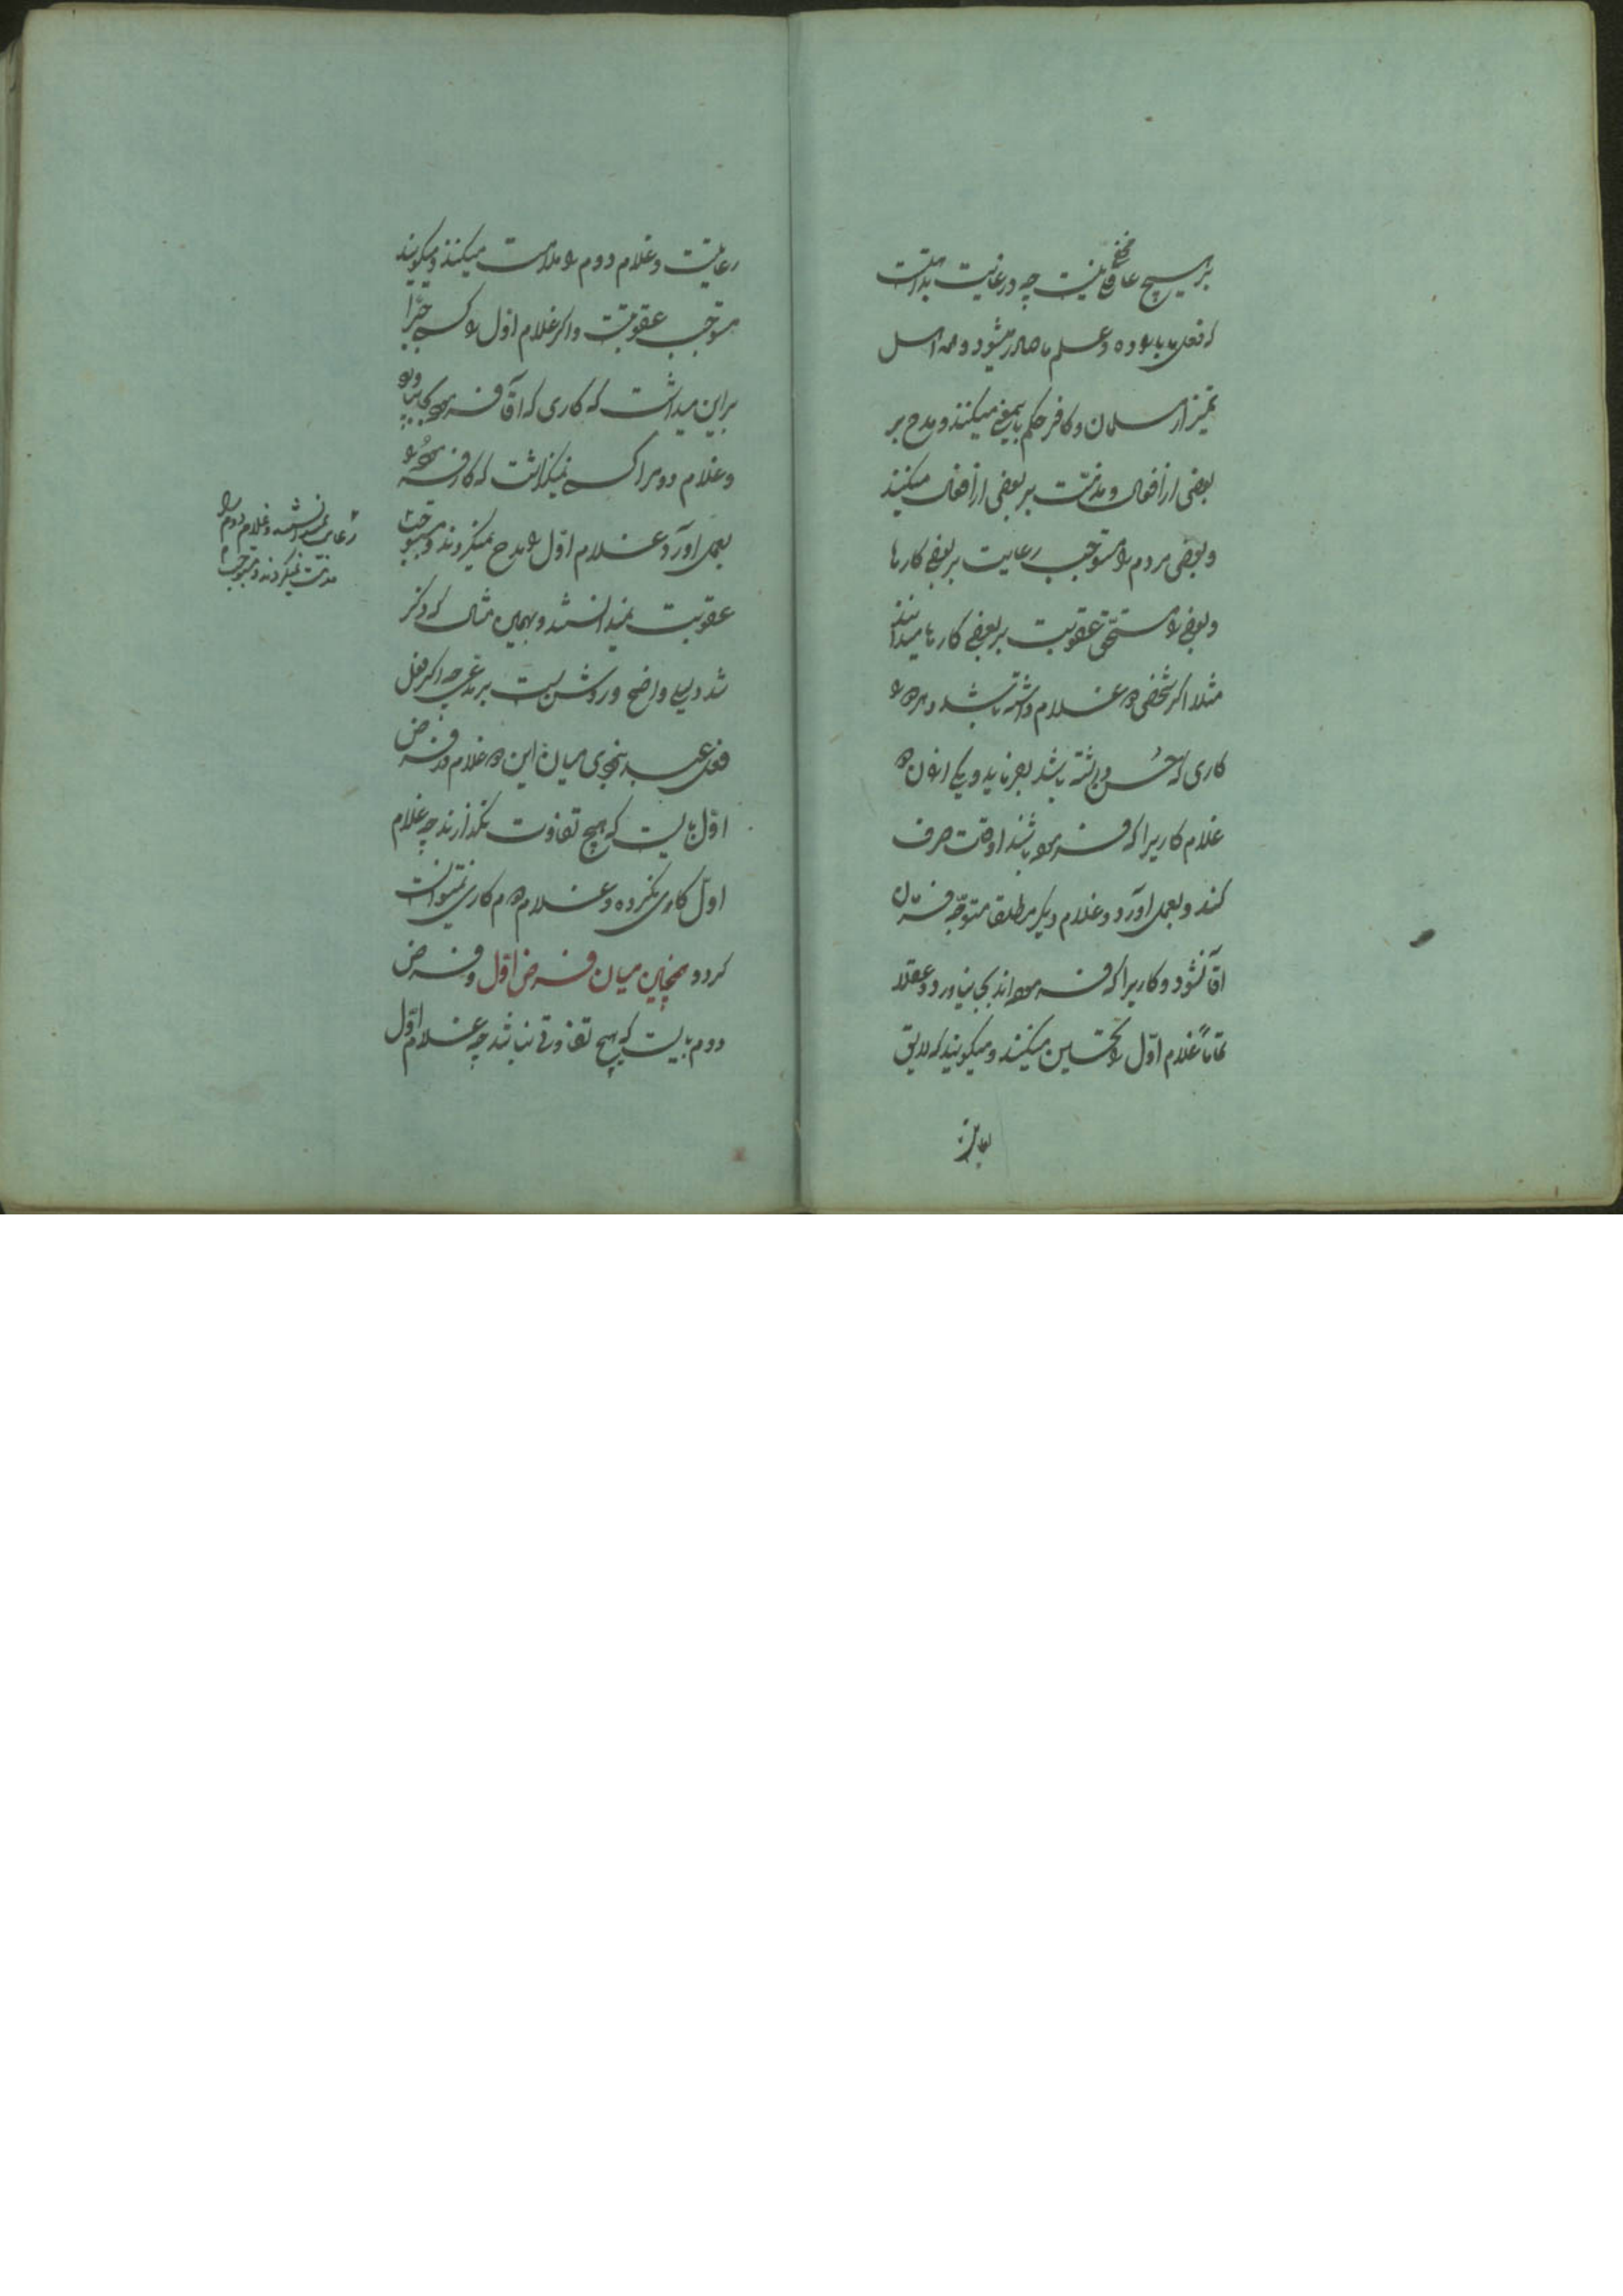 بر هیچ عاقلی مخفی نیست چه در غایت بداهتست
که فعل ما باراده و علم ما صادر میشود و همه اهل
تمیز از مسلمان و کافر حکم باینمعنی میکنند و مدح بر
بعضی از افعال و مذمّت بر بعضی از افعال میکنند
و بعضی مردم را مستوجب رعایت بر بعضی کارها
و بعضی را مستحقّ عقوبت بر بعضی کارها میدانند
مثلا اگر شخصی دو غلام داشته باشد و هر دو را
کاری که حسن داشته باشد بفرماید و یکی از آن دو
غلام کاریرا که فرموده باشند اوقات صرف
کند و بعمل اورد و غلام دیگر مطلقا متوجّه فرمان
آقا نشود و کاریرا که فرموده اند بجا نیاورد و عقلا
تماماً غلام اوّل را تحسین میکنند و میگویند که لایق
رعایتست و غلام دوم را ملامت میکنند و میگویند
مستوجب عقوبتست و اگر غلام اوّل را کسی جبرا
براین میداشت که کاری که آقا فرموده بجا بیاورد
و غلام دوم را کسی نمیگذاشت که کار فرموده را
بعمل اورد غلام اوّل را مدح نمیکردند و مستوجب
رعایت نمیدانستند و غلام دوم را
مذمّت نمیکردند و مستوجب
عقوبت نمیدانستند و همین مثال که ذکر
شد دلیلی واضح و روشن است بر مدعی چه اگر فعل
فعل عبد نبودی میان این دو غلام در فرض
اوّل بایست که هیچ تفاوت نگذارند چه غلام
اوّل کاری نکرده و غلام دوم کاری نمیتوانست
کرد و همچنین میان فرض اوّل و فرض
دوم بایست که هیچ تفاوتی نباشد چه غلام اوّل